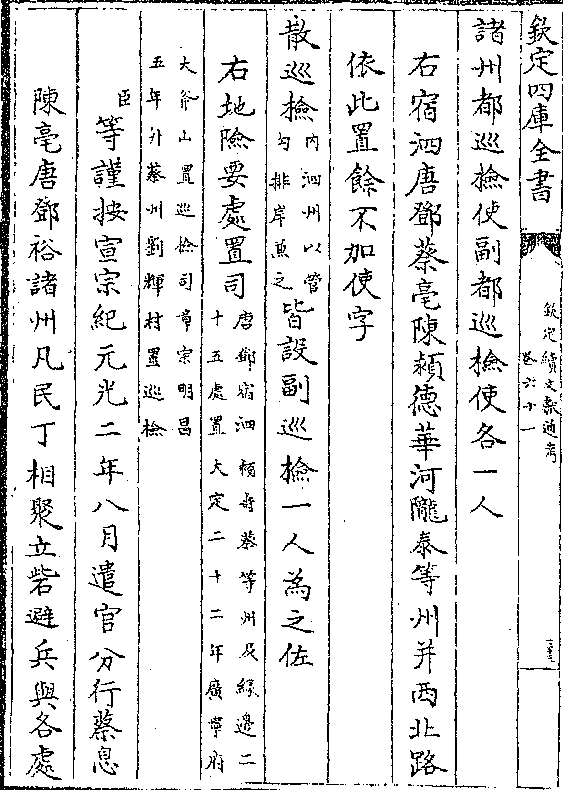 欽定四庫全書
欽定續文獻通考
卷六十一
諸州都巡檢使副都巡檢使各一人
右宿泗唐鄧蔡亳陳頴德華河隴泰等州并西北路
依此置餘不加使字
散巡檢内泗州以管勾排岸兼之皆設副巡檢一人為之佐
右地險要處置司唐鄧宿泗頴壽蔡等州及緣邊二十五處置大定二十二年廣寧府
大斧山置巡檢司章宗明昌五年升蔡州劉輝村置巡檢
臣等謹按宣宗紀元光二年八月遣官分行蔡息
陳亳唐鄧裕諸州凡民丁相聚立砦避兵與各處